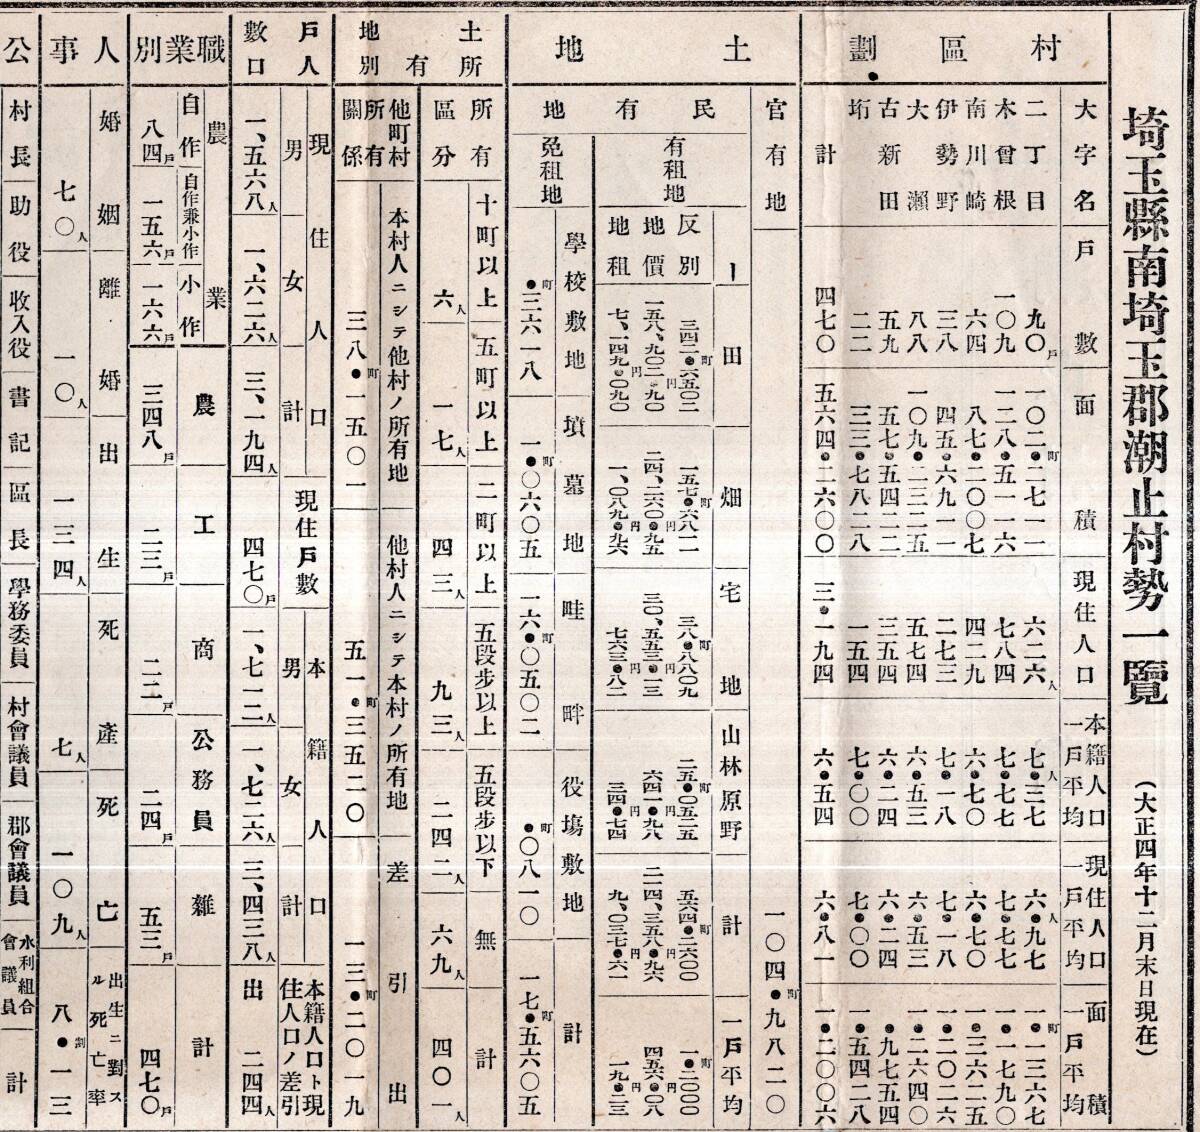 埼玉縣南埼玉郡潮止村勢一覽
(大正四年十二月末日現在)
村區劃
大字名
戶數
面積
現住人口
本籍人口一戶平均
現住人口一戶平均
面積一戶平均
二丁目 九〇戶 一〇二●町二七一一 六二六人 七●人三七 六●人九七 一●町一三六七
木曾根 一〇九 一二八●五一一六 七八四 七●七七 七●七七 一●一七九〇
南川崎 六四 八七●二〇〇七 四二九 六●七〇 六●七〇 一●三六二五
伊勢野 三八 四五●六九一一 二七三 七●一八 七●一八 一●二〇二六
大瀨 八八 一〇九●二三二五 五七四 六●五三 六●五三 一●二六四〇
古新田 五九 五七●五四二二 三五四 六●二四 六●二四 ●九七五四
垳 二二 三三●七八二八 一五四 七●〇〇 七●〇〇 一●五四二八
計 四七〇 五六四●二六〇〇 三●一九四 六●五四 六●八一 一●二〇〇六
土地
官有地 一〇四●町九八二〇
民有地
有租地
反別
地價
地租
田 三四二●町六五〇二 一五八、九〇二●円九〇 七、一四九●円〇九〇
畑 一五七●町六八二一 二四、二六〇●円九五 一、〇八九●円九六
宅地 三八●町八八〇九 三〇、五五二●円一三 七六三●円八二
山林原野 二五●町〇五二五 六四一●円九八 三四●円七四
計 五六四●町二六〇〇 二一四、三五八●円九六 九、〇三七●円六一
一戶平均 一●町二〇〇〇 四五六●円〇八 一九●円二三
免租地
學校敷地 ●町三六一八
墳墓地 一●町〇六〇五
畦畔 一六●町〇五〇二
役塲敷地 ●町〇八一〇
計 一七●町五六〇五
土地所有別
所有區分
十町以上 六人
五町以上 一七人
二町以上 四三人
五段步以上 九三人
五段步以下 二四二人
無 六九人
計 四〇一人
他町村所有關係
本村人ニシテ他村ノ所有地 三八●町一五〇一
他村人ニシテ本村ノ所有地 五一●町三五二〇
差引出 一三●町二〇一九
戶人數口
現住人口
男 一、五六八人
女 一、六二六人
計 三、一九四人
現住戶數 四七〇戶
本籍人口
男 一、七一二人
女 一、七二六人
計 三、四三八人
本籍人口ト現住人口ノ差引 出 二四四人
職業別
農業
自作 八四戶
自作兼小作 一五六戶
小作 一六六戶
農 三四八戶
工 二三戶
商 二二戶
公務員 二四戶
雜 五三戶
計 四七〇戶
人事
婚姻 七〇人
離婚 一〇人
出生 一三四人
死產 七人
死亡 一〇九人
出生ニ對スル死亡率 八●割一三
公
村長
助役
收入役
書記
區長
學務委員
村會議員
郡會議員
水利組合會議員
計